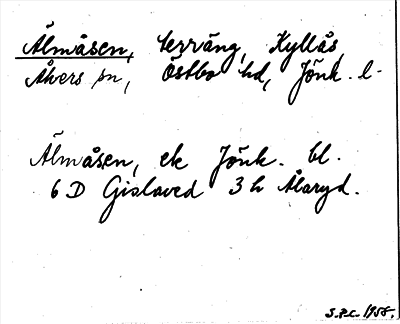 Älmåsen, terräng, Kyllås,
Åkers sn, Östbo hd, Jönk. l.
Älmåsen, ek Jönk. bl.
6 D Gislaved 3 h Ålaryd.
S.P.C. 1958.